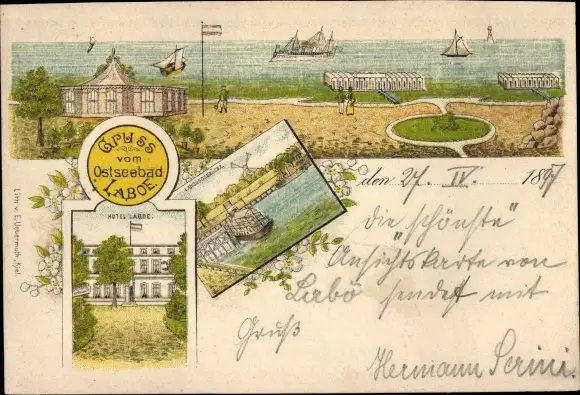 Gruss
vom
Ostseebad
LABOE.
HOTEL LABOE.
Lith. v. E. Uebermuth, Kiel.
den 27. IV. 1897
Die "schönste"
Ansichtskarte von
Labö sendet mit
Gruß
Hermann Serini.